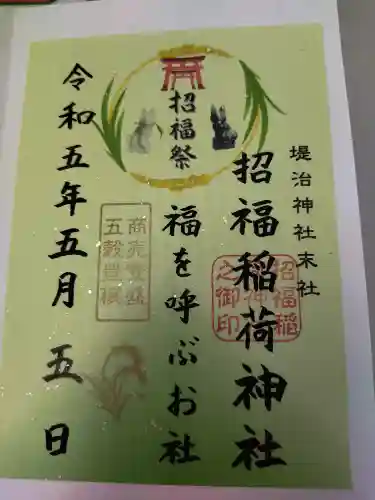 堤治神社末社
招福稲荷神社
招福稲
荷神社
之御印
招福祭
福を呼ぶお社
商売繁盛
五穀豊穣
令和五年五月五日